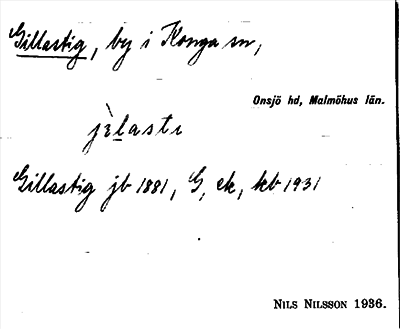 Gillastig, by i Konga sn,
Onsjö hd, Malmöhus län.
jèlastɩ
Gillastig jb 1881, G, ek, kb 1931
NILS NILSSON 1936.